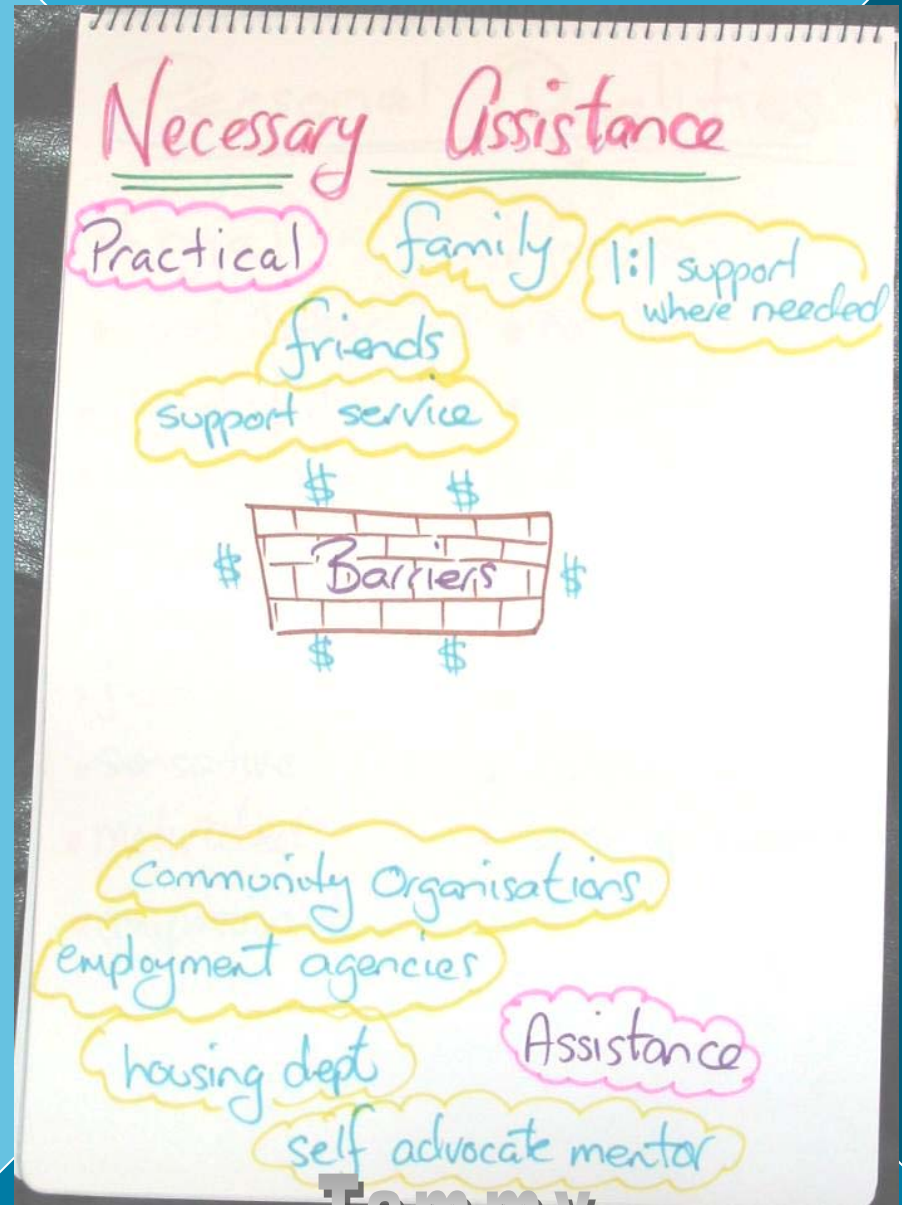 Necessary Assistance
Practical
family
1:1 support
where needed
friends
support service
$ $
$ Barriers $
$ $
community Organisations
employment agencies
Assistance
housing dept
self advocate mentor
Tammy